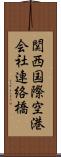 関西国際空港
会社連絡橋